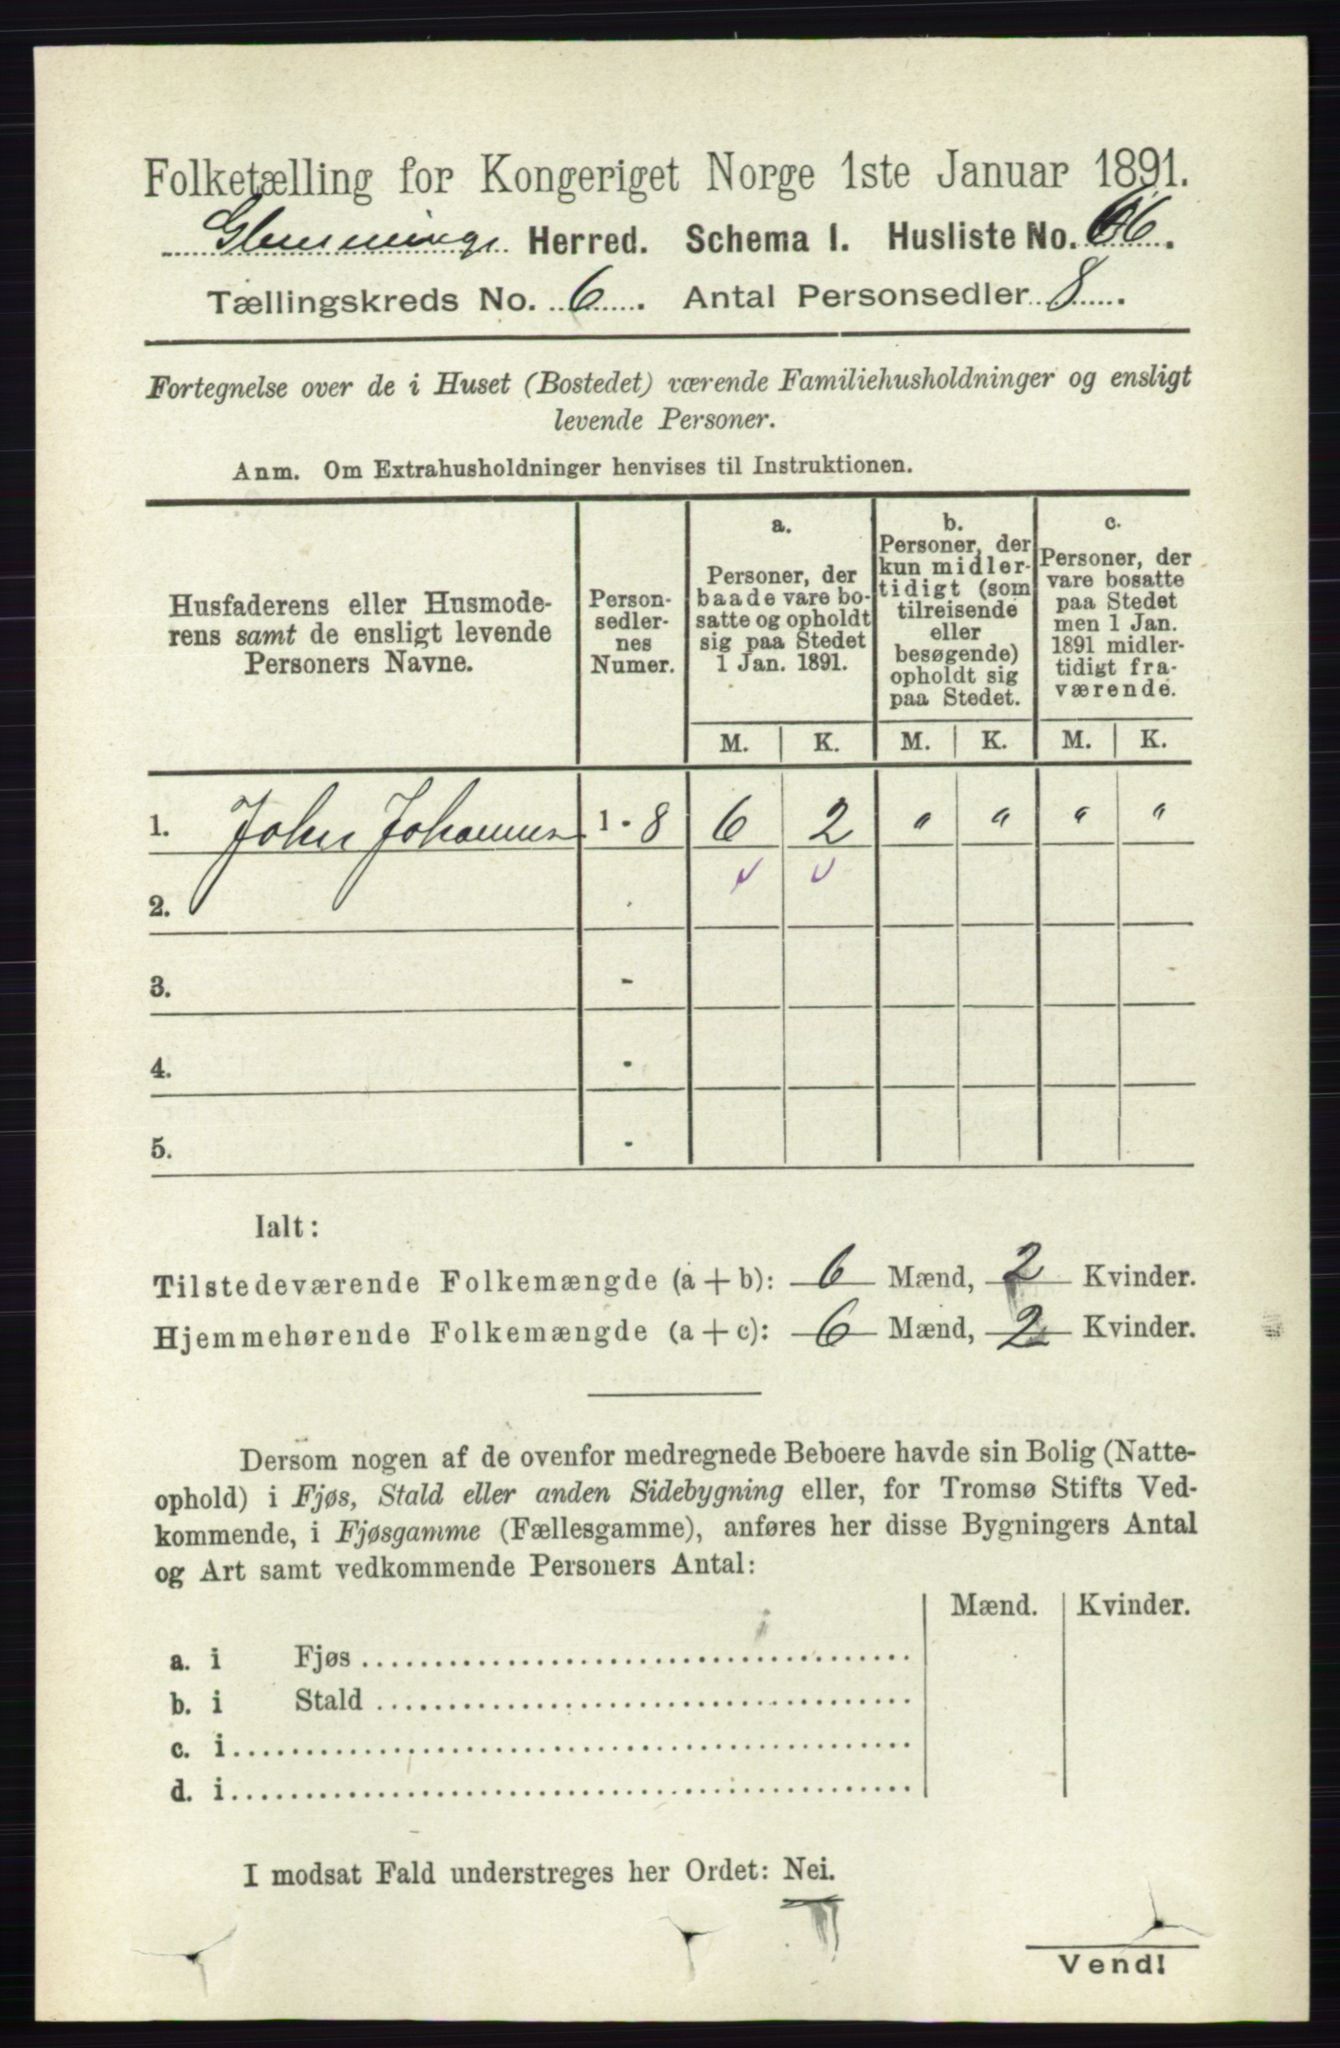 Folketælling for Kongeriget Norge 1ste Januar 1891.
Glemminge Herred. Schema I. Husliste No. 66.
Tællingskreds No. 6. Antal Personsedler 8.
Fortegnelse over de i Huset (Bostedet) værende Familiehusholdninger og ensligt
levende Personer.
Anm. Om Extrahusholdninger henvises til Instruktionen.
Husfaderens eller Husmode-
rens samt de ensligt levende
Personers Navne.
Person-
sedler-
nes
Numer.
a.
Personer, der
baade vare bo-
satte og opholdt
sig paa Stedet
1 Jan. 1891.
b.
Personer, der
kun midler-
tidigt (som
tilreisende
eller
besøgende)
opholdt sig
paa Stedet.
c.
Personer, der
vare bosatte
paa Stedet
men 1 Jan.
1891 midler-
tidigt fra-
værende.
M. K. M. K. M. K.
1. John Johannes 1 - 8 6 2 " " " "
2.
3. -
4. -
5. -
Ialt:
Tilstedeværende Folkemængde (a + b): 6 Mænd, 2 Kvinder.
Hjemmehørende Folkemængde (a + c): 6 Mænd, 2 Kvinder.
Dersom nogen af de ovenfor medregnede Beboere havde sin Bolig (Natte-
ophold) i Fjøs, Stald eller anden Sidebygning eller, for Tromsø Stifts Ved-
kommende, i Fjøsgamme (Fællesgamme), anføres her disse Bygningers Antal
og Art samt vedkommende Personers Antal:
Mænd. Kvinder.
a. i Fjøs
b. i Stald
c. i
d. i
I modsat Fald understreges her Ordet: Nei.
Vend!